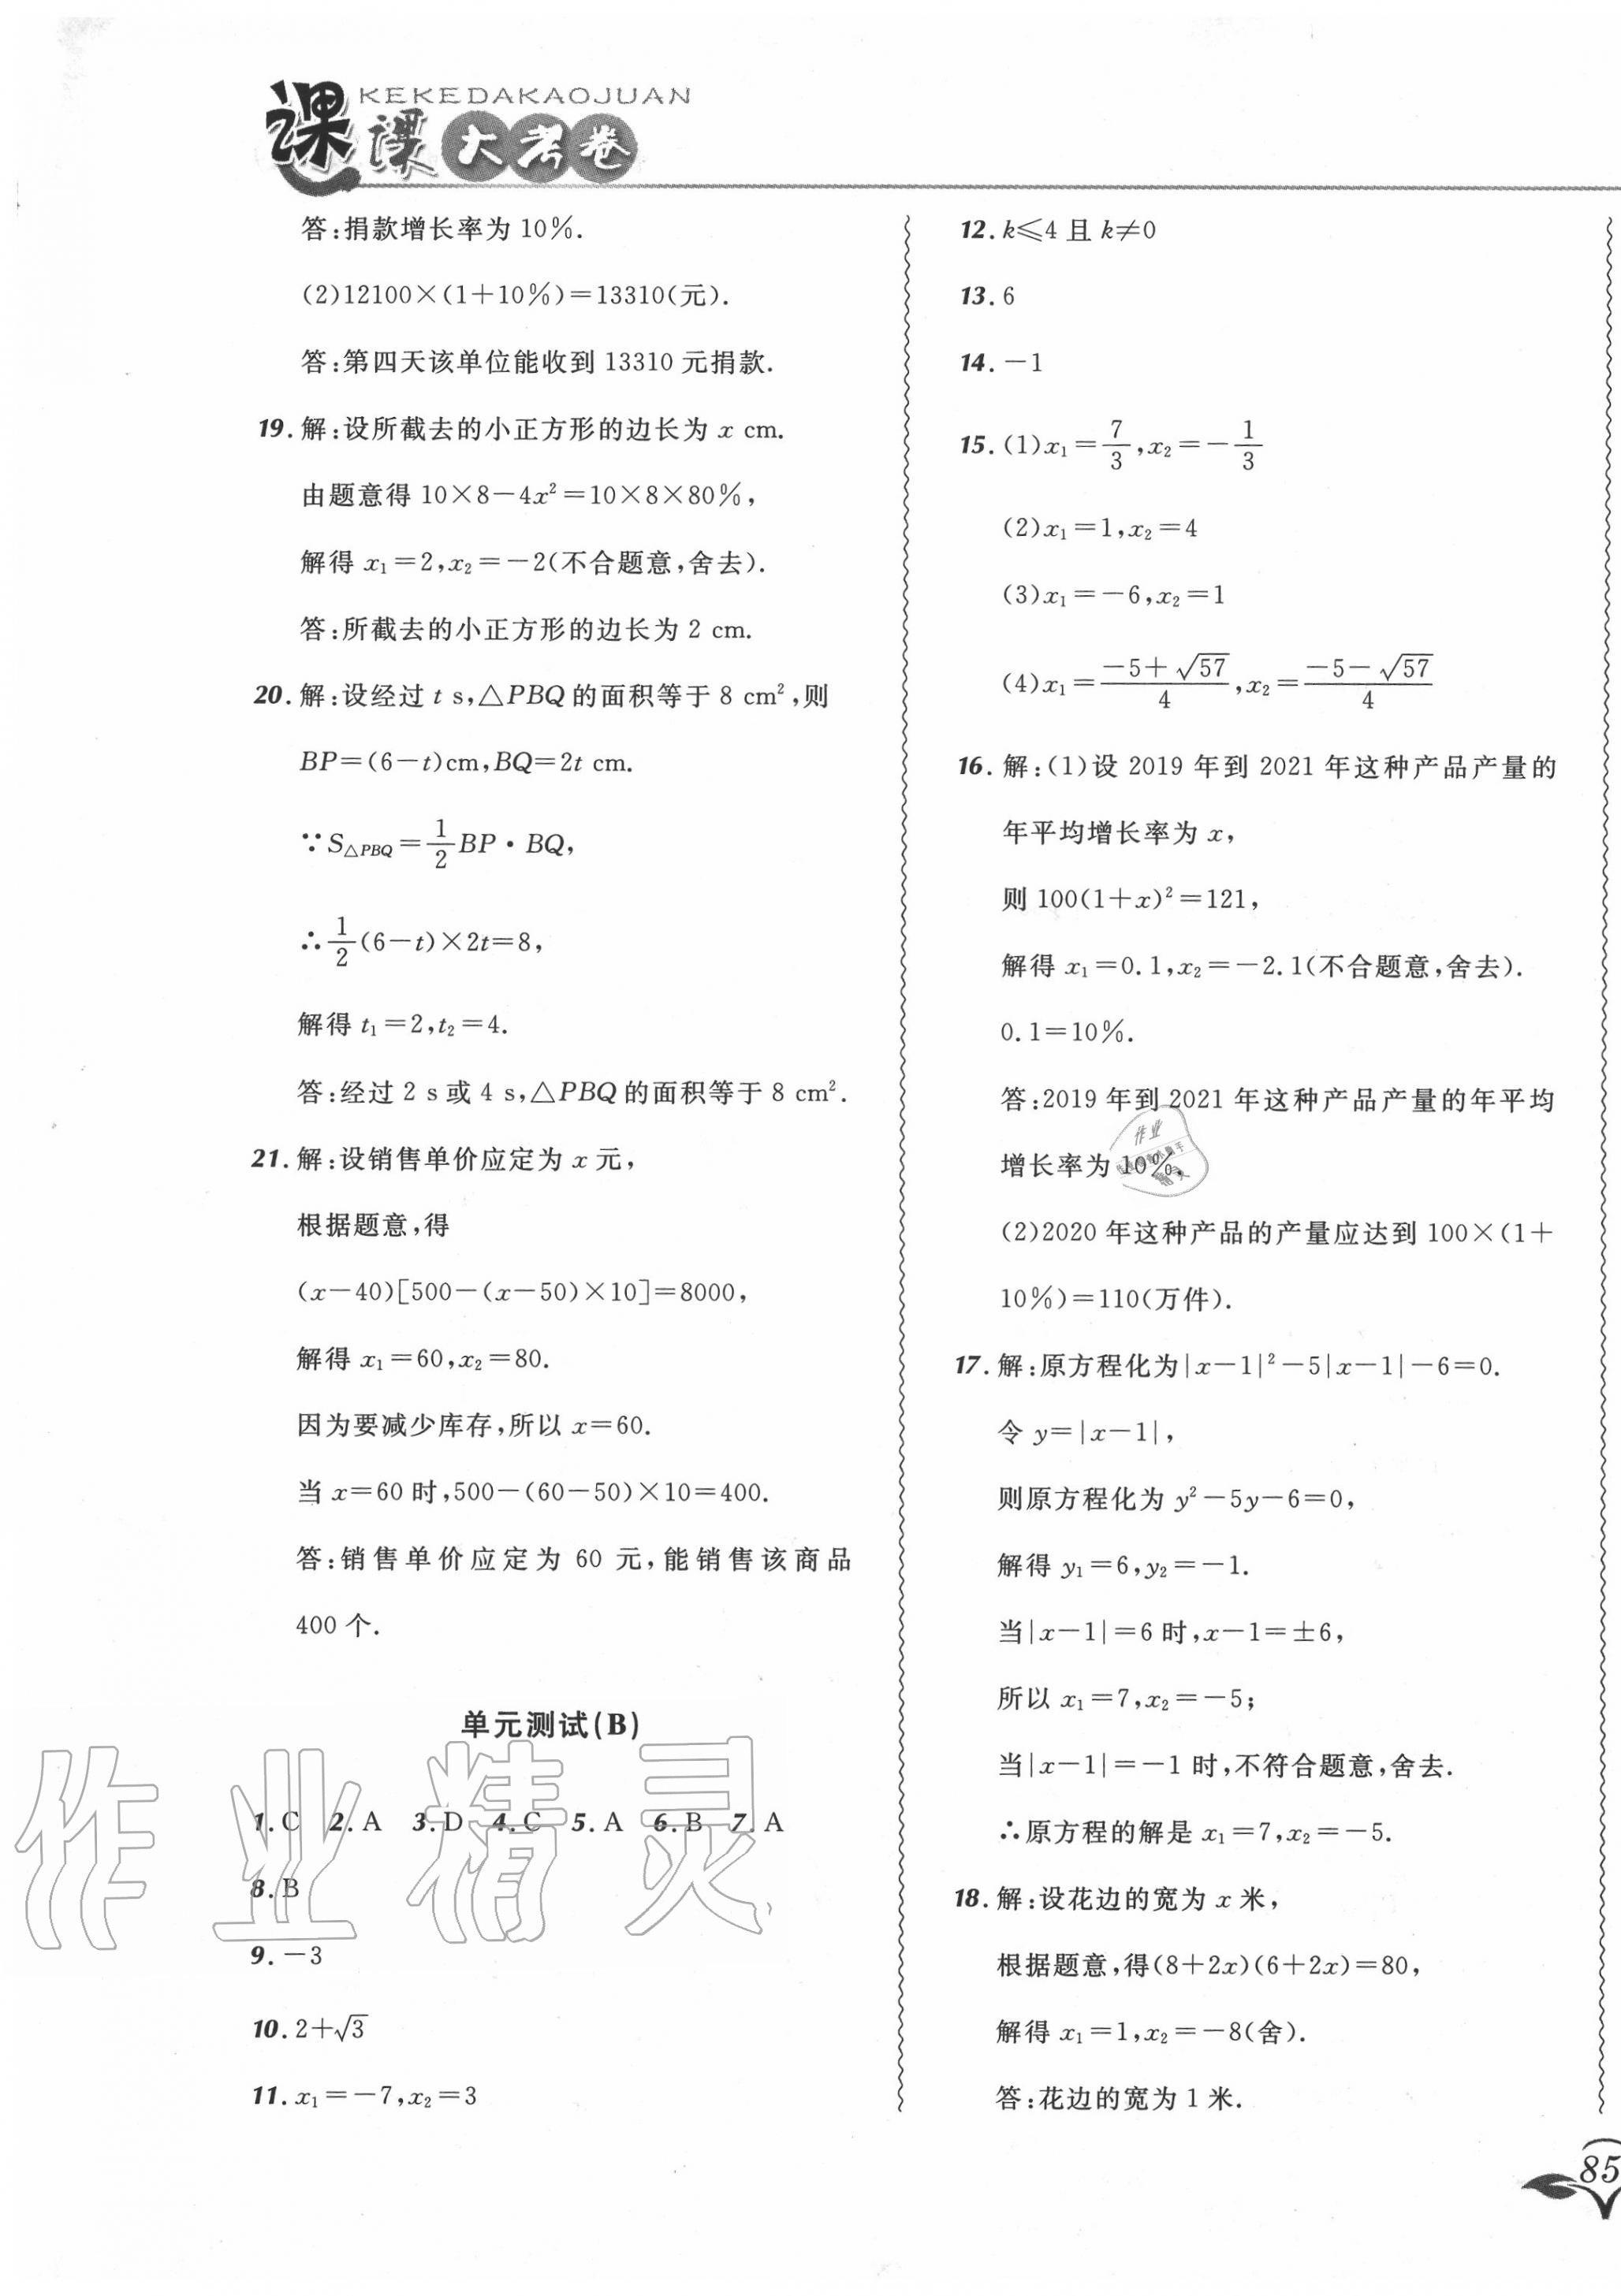 课课大考卷
KEKEDAKAOJUAN
答:捐款增长率为 10%.
(2)12100×(1+10%)=13310(元).
答:第四天该单位能收到 13310 元捐款.
19. 解:设所截去的小正方形的边长为 x cm.
由题意得 10×8-4x²=10×8×80%,
解得 x₁=2,x₂=-2(不合题意,舍去).
答:所截去的小正方形的边长为 2 cm.
20. 解:设经过 t s,△PBQ 的面积等于 8 cm²,则
BP=(6-t)cm,BQ=2t cm.
∵S△PBQ=1/2 BP·BQ,
∴1/2(6-t)×2t=8,
解得 t₁=2,t₂=4.
答:经过 2 s 或 4 s,△PBQ 的面积等于 8 cm².
21. 解:设销售单价应定为 x 元,
根据题意,得
(x-40)[500-(x-50)×10]=8000,
解得 x₁=60,x₂=80.
因为要减少库存,所以 x=60.
当 x=60 时,500-(60-50)×10=400.
答:销售单价应定为 60 元,能销售该商品
400 个.
单元测试(B)
1. C 2. A 3. D 4. C 5. A 6. B 7. A
8. B
9. -3
10. 2+√3
11. x₁=-7,x₂=3
12. k≤4 且 k≠0
13. 6
14. -1
15. (1)x₁=7/3,x₂=-1/3
(2)x₁=1,x₂=4
(3)x₁=-6,x₂=1
(4)x₁=(-5+√57)/4,x₂=(-5-√57)/4
16. 解:(1)设 2019 年到 2021 年这种产品产量的
年平均增长率为 x,
则 100(1+x)²=121,
解得 x₁=0.1,x₂=-2.1(不合题意,舍去).
0.1=10%.
答:2019 年到 2021 年这种产品产量的年平均
增长率为 10%.
(2)2020 年这种产品的产量应达到 100×(1+
10%)=110(万件).
17. 解:原方程化为|x-1|²-5|x-1|-6=0.
令 y=|x-1|,
则原方程化为 y²-5y-6=0,
解得 y₁=6,y₂=-1.
当|x-1|=6 时,x-1=±6,
所以 x₁=7,x₂=-5;
当|x-1|=-1 时,不符合题意,舍去.
∴原方程的解是 x₁=7,x₂=-5.
18. 解:设花边的宽为 x 米,
根据题意,得(8+2x)(6+2x)=80,
解得 x₁=1,x₂=-8(舍).
答:花边的宽为 1 米.
85
作业精灵
作业